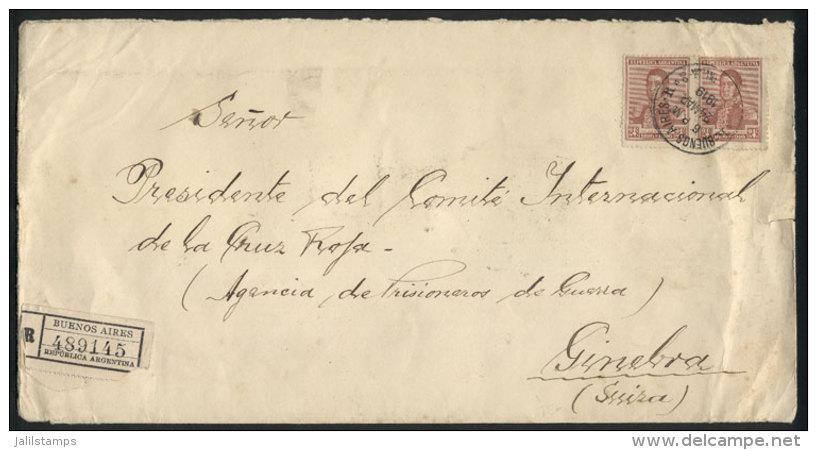 REPUBLICA ARGENTINA REPUBLICA ARGENTINA
BUENOS AIRES
1919
24 24
Señor
Presidente del Comité Internacional
de la Cruz Roja -
(Agencia de Prisioneros de Guerra)
Ginebra
(Suiza)
R
BUENOS AIRES
489145
REPÚBLICA ARGENTINA
jalilstamps
www.delcampe.net